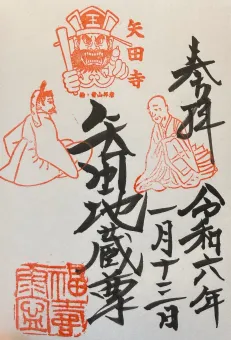 奉拝
令和六年
一月十三日
矢田寺
矢田地蔵尊